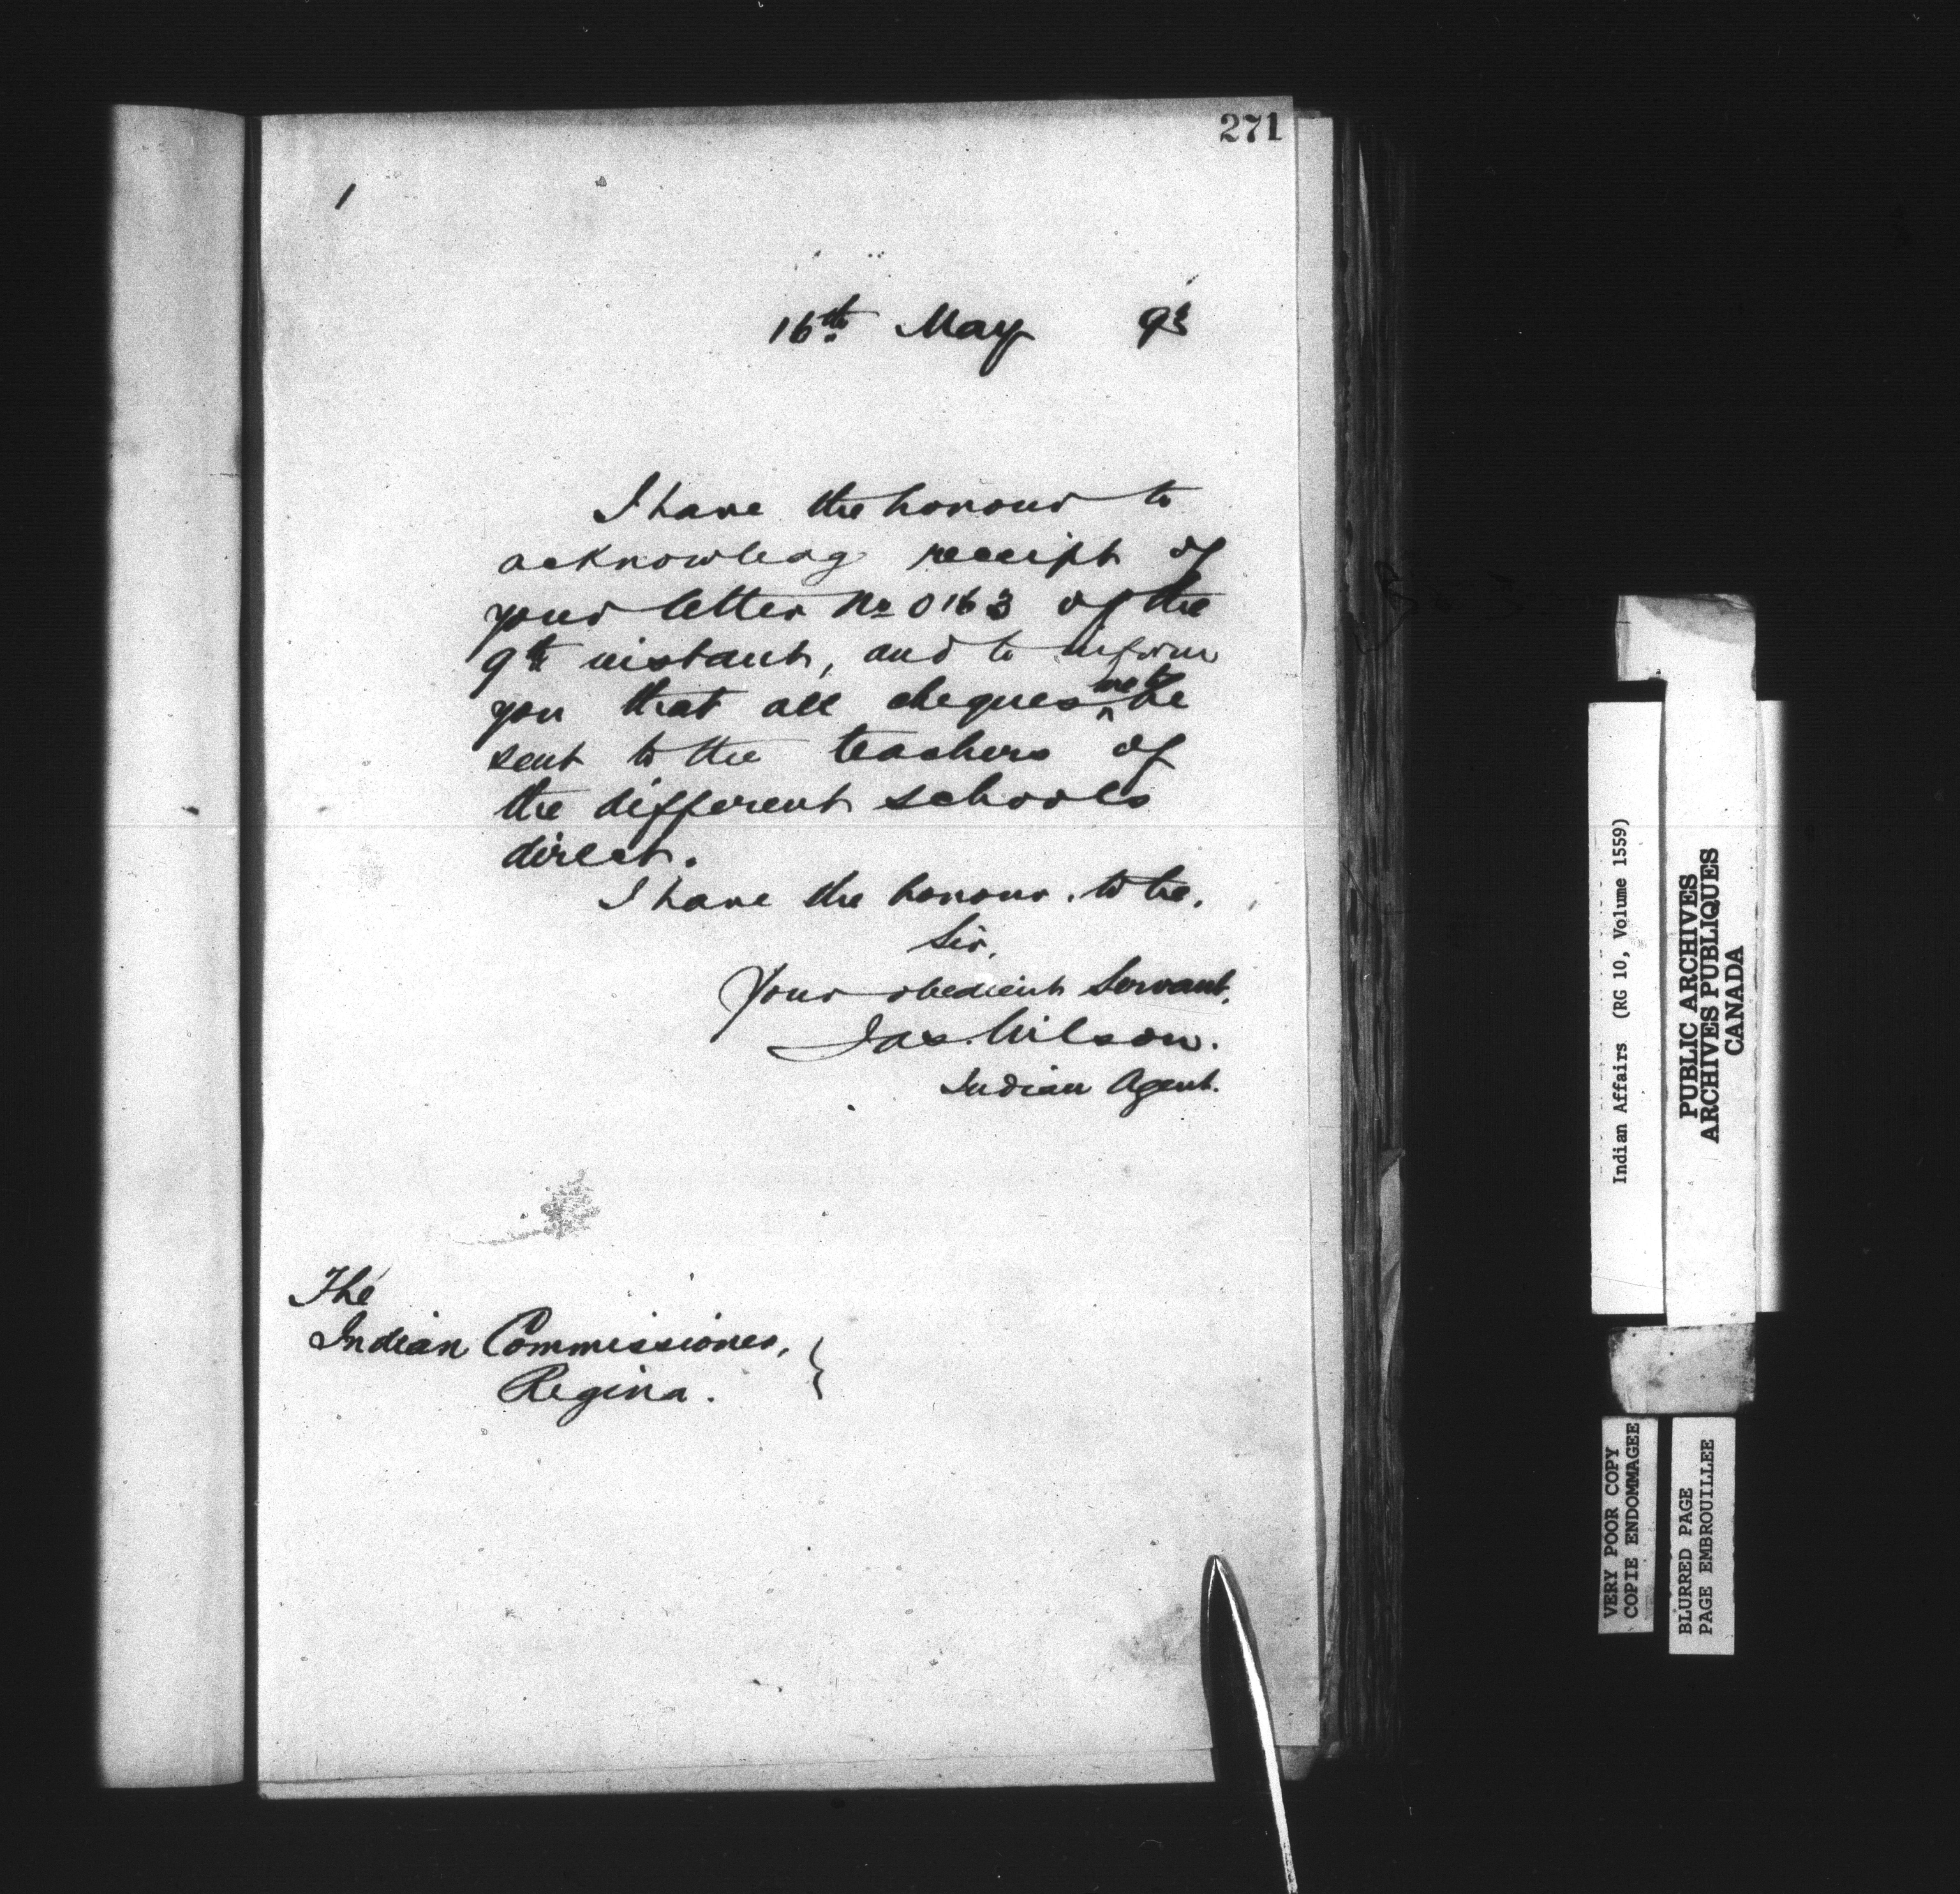 271
16th May 93
I have the honour to
acknowledg receipt of
your letter No 0163 of the
9th instant, and to inform
you that all cheques be
sent to the teachers of
the different schools
direct.
I have the honour to be,
Sir,
Your obedient Servant,
Jas. Wilson.
Indian Agent.
The
Indian Commissioner,
Regina.
Indian Affairs (RG 10, Volume 1559)
PUBLIC ARCHIVES
ARCHIVES PUBLIQUES
CANADA
VERY POOR COPY
COPIE ENDOMMAGEE
BLURRED PAGE
PAGE EMBROUILLEE